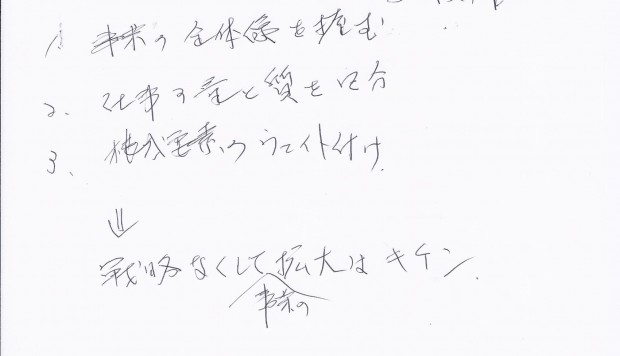 1. 事業の全体像を掴む
2. 仕事の量と質を区分
3. 構成要素のウエイト付け
⇓
戦略なくして事業の拡大はキケン.